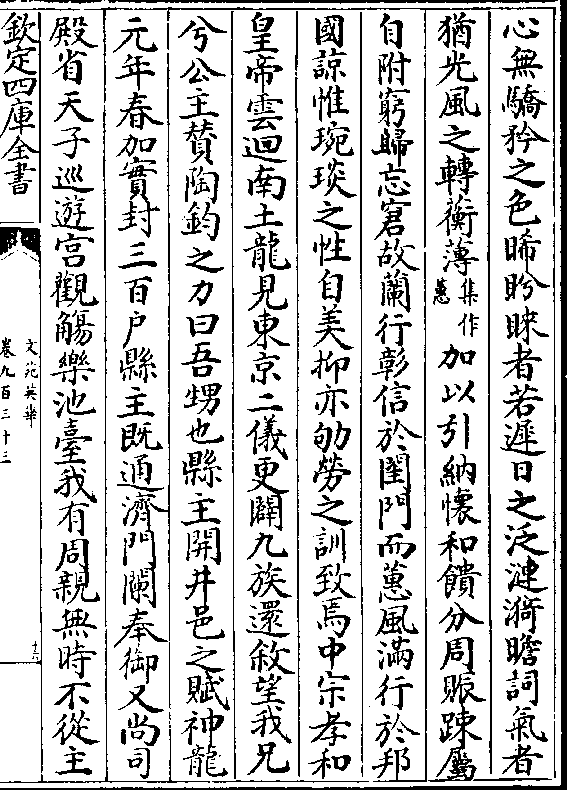 心無驕矜之色晞盻睞者若遲日之泛漣漪瞻詞氣者
猶光風之轉蘅薄集作蕙加以引納懷和饋分周賑踈屬
自附窮歸忘窘故蘭行彰信於閨門而蕙風滿行於邦
國諒惟琬琰之性自美抑亦劬勞之訓致焉中宗孝和
皇帝雲迴南土龍見東京二儀更闢九族還敘望我兄
兮公主賛陶鈞之力曰吾甥也縣主開井邑之賦神龍
元年春加實封三百户縣主既通濟門闌奉御又尚司
殿省天子巡遊宫觀觴樂池臺我有周親無時不從主
欽定四庫全書
文苑英華
卷九百三十三